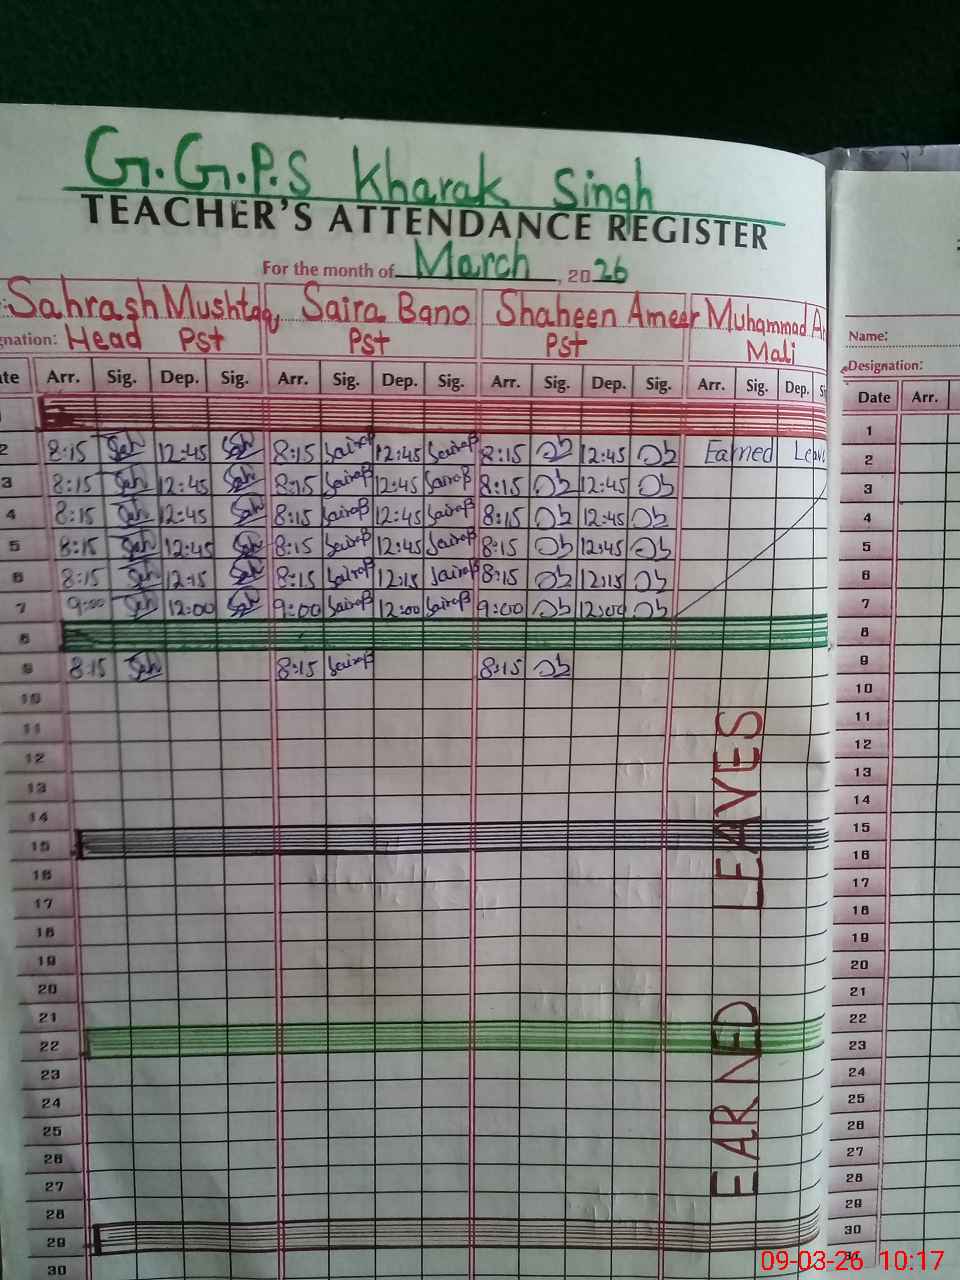 G.G.P.S Kharak Singh
TEACHER'S ATTENDANCE REGISTER
For the month of March, 2026
Sahrash Mushtaq Saira Bano Shaheen Ameer Muhammad
Head Pst Pst Pst Mali
Arr. Sig. Dep. Sig. Arr. Sig. Dep. Sig. Arr. Sig. Dep. Sig. Arr. Sig. Dep.
2 8:15 12:45 8:15 12:45 8:15 12:45 Earned
3 8:15 12:45 8:15 12:45 8:15 12:45
4 8:15 12:45 8:15 12:45 8:15 12:45
5 8:15 12:45 8:15 12:45 8:15 12:45
6 8:15 12:15 8:15 12:15 8:15 12:15
7 9:00 12:00 9:00 12:00 9:00 12:00
8
9 8:15 8:15 8:15
10
11
12
13
14
15
16
17
18
19
20
21
22
23
24
25
26
27
28
29
30
EARNED LEAVES
Name:
Designation:
Date Arr.
1
2
3
4
5
6
7
8
9
10
11
12
13
14
15
16
17
18
19
20
21
22
23
24
25
26
27
28
29
30
09-03-26 10:17